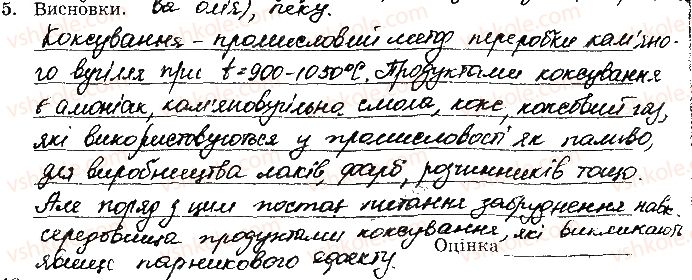 5. Висновки. ва олія), пеку.
Коксування – промисловий метод переробки кам'яно-
го вугілля при t=900-1050°C. Продуктами коксування
є амоніак, кам'яновугільна смола, кокс, коксовий газ,
які використовуються у промисловості як паливо,
для виробництва лаків, фарб, розчинників тощо.
Але поряд з цим постає питання забруднення навк.
середовища продуктами коксування, які викликають
явище парникового ефекту. Оцінка